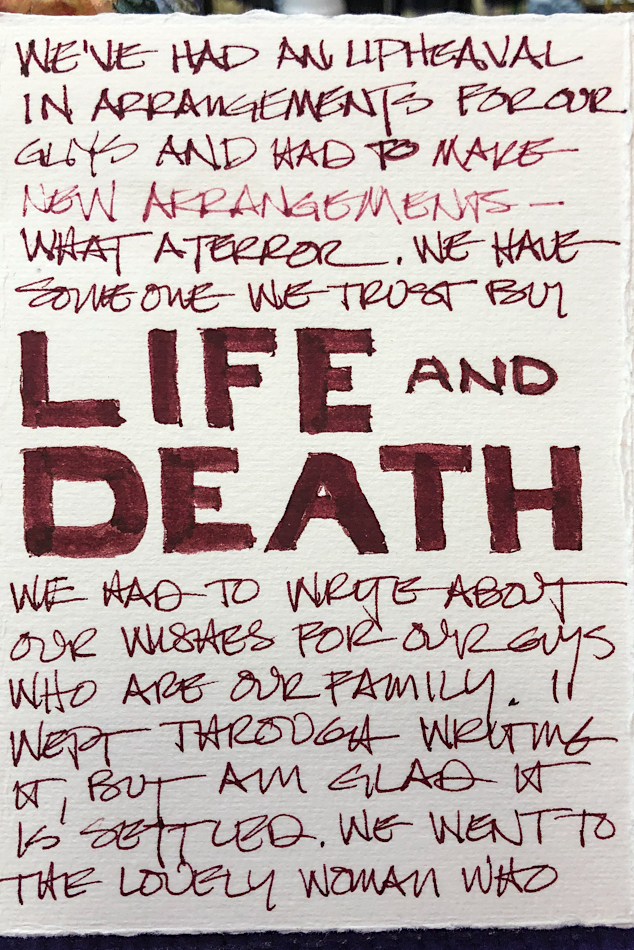 WE'VE HAD AN UPHEAVAL
IN ARRANGEMENTS FOR OUR
GUYS AND HAD TO MAKE
NEW ARRANGEMENTS –
WHAT A TERROR. WE HAVE
SOMEONE WE TRUST BUT
LIFE AND
DEATH
WE HAD TO WRITE ABOUT
OUR WISHES FOR OUR GUYS
WHO ARE OUR FAMILY. I
WEPT THROUGH WRITING
IT, BUT AM GLAD IT
IS SETTLED. WE WENT TO
THE LOVELY WOMAN WHO